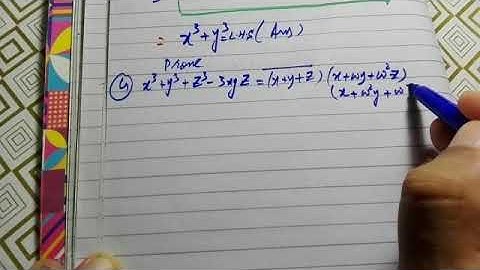 = x³ + y³ = LHS (Ans)
Prove
(4) x³ + y³ + z³ - 3xyz = (x+y+z) (x+wy+w²z)
(x+w²y+w